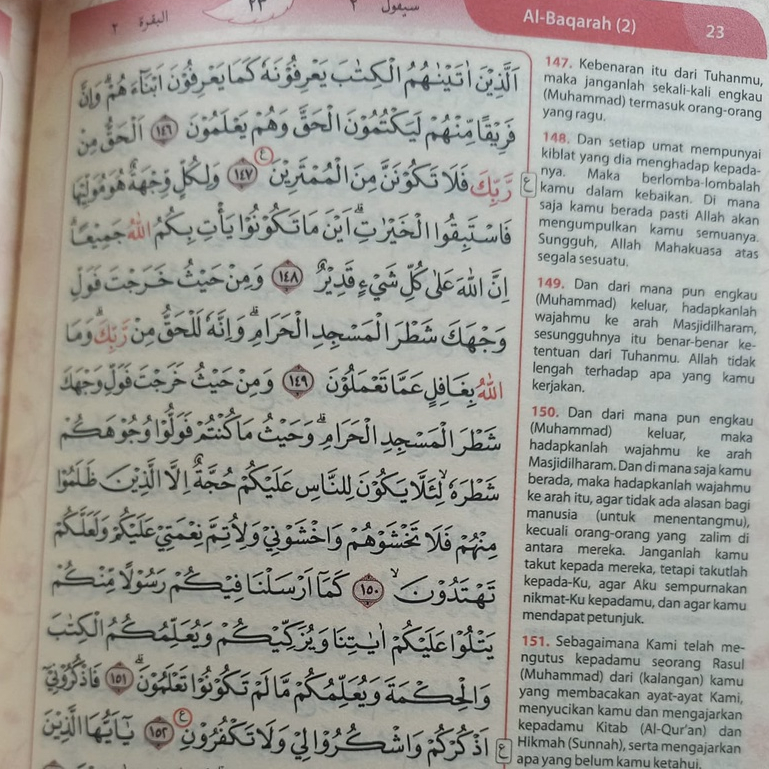 البقرة ٢
٢٣
سيقول ٢
Al-Baqarah (2)
23
اَلَّذِيْنَ اٰتَيْنٰهُمُ الْكِتٰبَ يَعْرِفُوْنَهٗ كَمَا يَعْرِفُوْنَ اَبْنَاۤءَهُمْۗ وَاِنَّ
فَرِيْقًا مِّنْهُمْ لَيَكْتُمُوْنَ الْحَقَّ وَهُمْ يَعْلَمُوْنَ ١٤٦ اَلْحَقُّ مِنْ
رَّبِّكَ فَلَا تَكُوْنَنَّ مِنَ الْمُمْتَرِيْنَ ࣖ ١٤٧ وَلِكُلٍّ وِّجْهَةٌ هُوَ مُوَلِّيْهَا
فَاسْتَبِقُوا الْخَيْرٰتِۗ اَيْنَ مَا تَكُوْنُوْا يَأْتِ بِكُمُ اللّٰهُ جَمِيْعًاۗ
اِنَّ اللّٰهَ عَلٰى كُلِّ شَيْءٍ قَدِيْرٌ ١٤٨ وَمِنْ حَيْثُ خَرَجْتَ فَوَلِّ
وَجْهَكَ شَطْرَ الْمَسْجِدِ الْحَرَامِۗ وَاِنَّهٗ لَلْحَقُّ مِنْ رَّبِّكَۗ وَمَا
اللّٰهُ بِغَافِلٍ عَمَّا تَعْمَلُوْنَ ١٤٩ وَمِنْ حَيْثُ خَرَجْتَ فَوَلِّ وَجْهَكَ
شَطْرَ الْمَسْجِدِ الْحَرَامِۗ وَحَيْثُ مَا كُنْتُمْ فَوَلُّوْا وُجُوْهَكُمْ
شَطْرَهٗۙ لِئَلَّا يَكُوْنَ لِلنَّاسِ عَلَيْكُمْ حُجَّةٌ اِلَّا الَّذِيْنَ ظَلَمُوْا
مِنْهُمْ فَلَا تَخْشَوْهُمْ وَاخْشَوْنِيْ وَلِاُتِمَّ نِعْمَتِيْ عَلَيْكُمْ وَلَعَلَّكُمْ
تَهْتَدُوْنَۙ ١٥٠ كَمَآ اَرْسَلْنَا فِيْكُمْ رَسُوْلًا مِّنْكُمْ
يَتْلُوْا عَلَيْكُمْ اٰيٰتِنَا وَيُزَكِّيْكُمْ وَيُعَلِّمُكُمُ الْكِتٰبَ
وَالْحِكْمَةَ وَيُعَلِّمُكُمْ مَّا لَمْ تَكُوْنُوْا تَعْلَمُوْنَۗ ١٥١ فَاذْكُرُوْنِيْٓ
اَذْكُرْكُمْ وَاشْكُرُوْا لِيْ وَلَا تَكْفُرُوْنِ ࣖ ١٥٢ يٰٓاَيُّهَا الَّذِيْنَ
ع
ع
147. Kebenaran itu dari Tuhanmu,
maka janganlah sekali-kali engkau
(Muhammad) termasuk orang-orang
yang ragu.
148. Dan setiap umat mempunyai
kiblat yang dia menghadap kepada-
nya. Maka berlomba-lombalah
kamu dalam kebaikan. Di mana
saja kamu berada pasti Allah akan
mengumpulkan kamu semuanya.
Sungguh, Allah Mahakuasa atas
segala sesuatu.
149. Dan dari mana pun engkau
(Muhammad) keluar, hadapkanlah
wajahmu ke arah Masjidilharam,
sesungguhnya itu benar-benar ke-
tentuan dari Tuhanmu. Allah tidak
lengah terhadap apa yang kamu
kerjakan.
150. Dan dari mana pun engkau
(Muhammad) keluar, maka
hadapkanlah wajahmu ke arah
Masjidilharam. Dan di mana saja kamu
berada, maka hadapkanlah wajahmu
ke arah itu, agar tidak ada alasan bagi
manusia (untuk menentangmu),
kecuali orang-orang yang zalim di
antara mereka. Janganlah kamu
takut kepada mereka, tetapi takutlah
kepada-Ku, agar Aku sempurnakan
nikmat-Ku kepadamu, dan agar kamu
mendapat petunjuk.
151. Sebagaimana Kami telah me-
ngutus kepadamu seorang Rasul
(Muhammad) dari (kalangan) kamu
yang membacakan ayat-ayat Kami,
menyucikan kamu dan mengajarkan
kepadamu Kitab (Al-Qur'an) dan
Hikmah (Sunnah), serta mengajarkan
apa yang belum kamu ketahui.